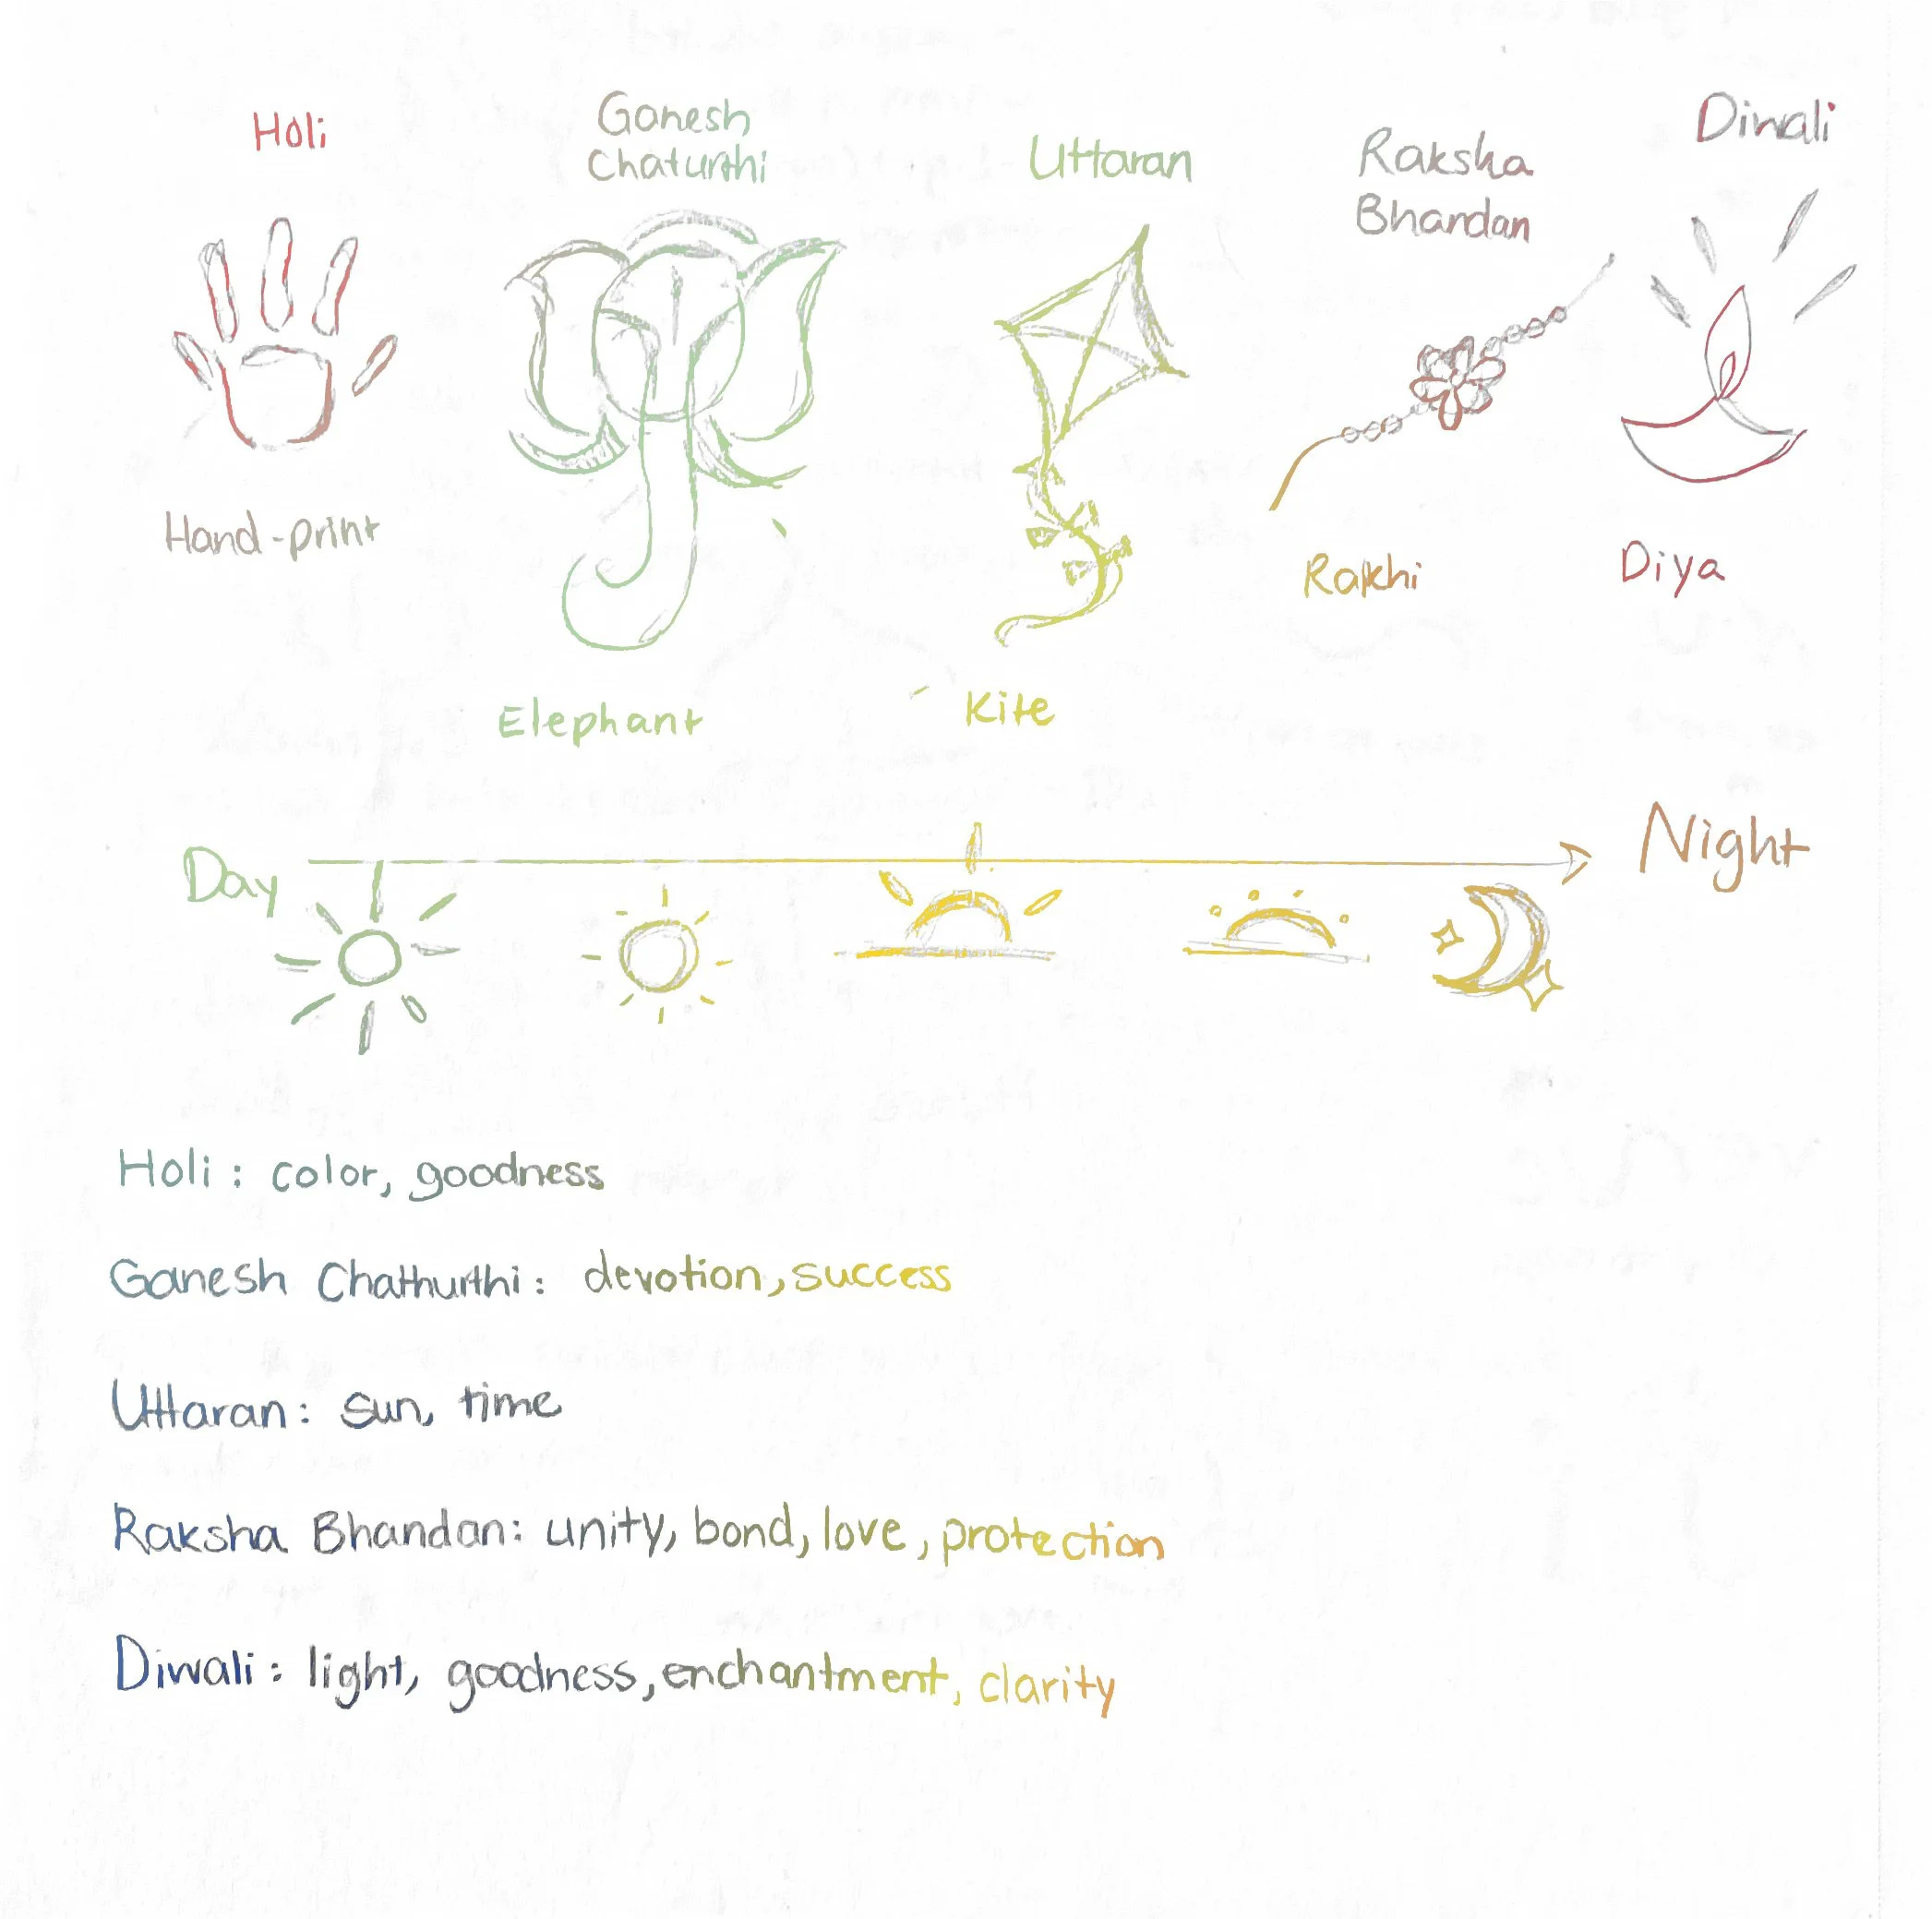 Holi
Ganesh
Chaturthi
Uttaran
Raksha
Bhandan
Diwali
Hand-print
Elephant
Kite
Rakhi
Diya
Day
Night
Holi: color, goodness
Ganesh Chathurthi: devotion, success
Uttaran: sun, time
Raksha Bhandan: unity, bond, love, protection
Diwali: light, goodness, enchantment, clarity